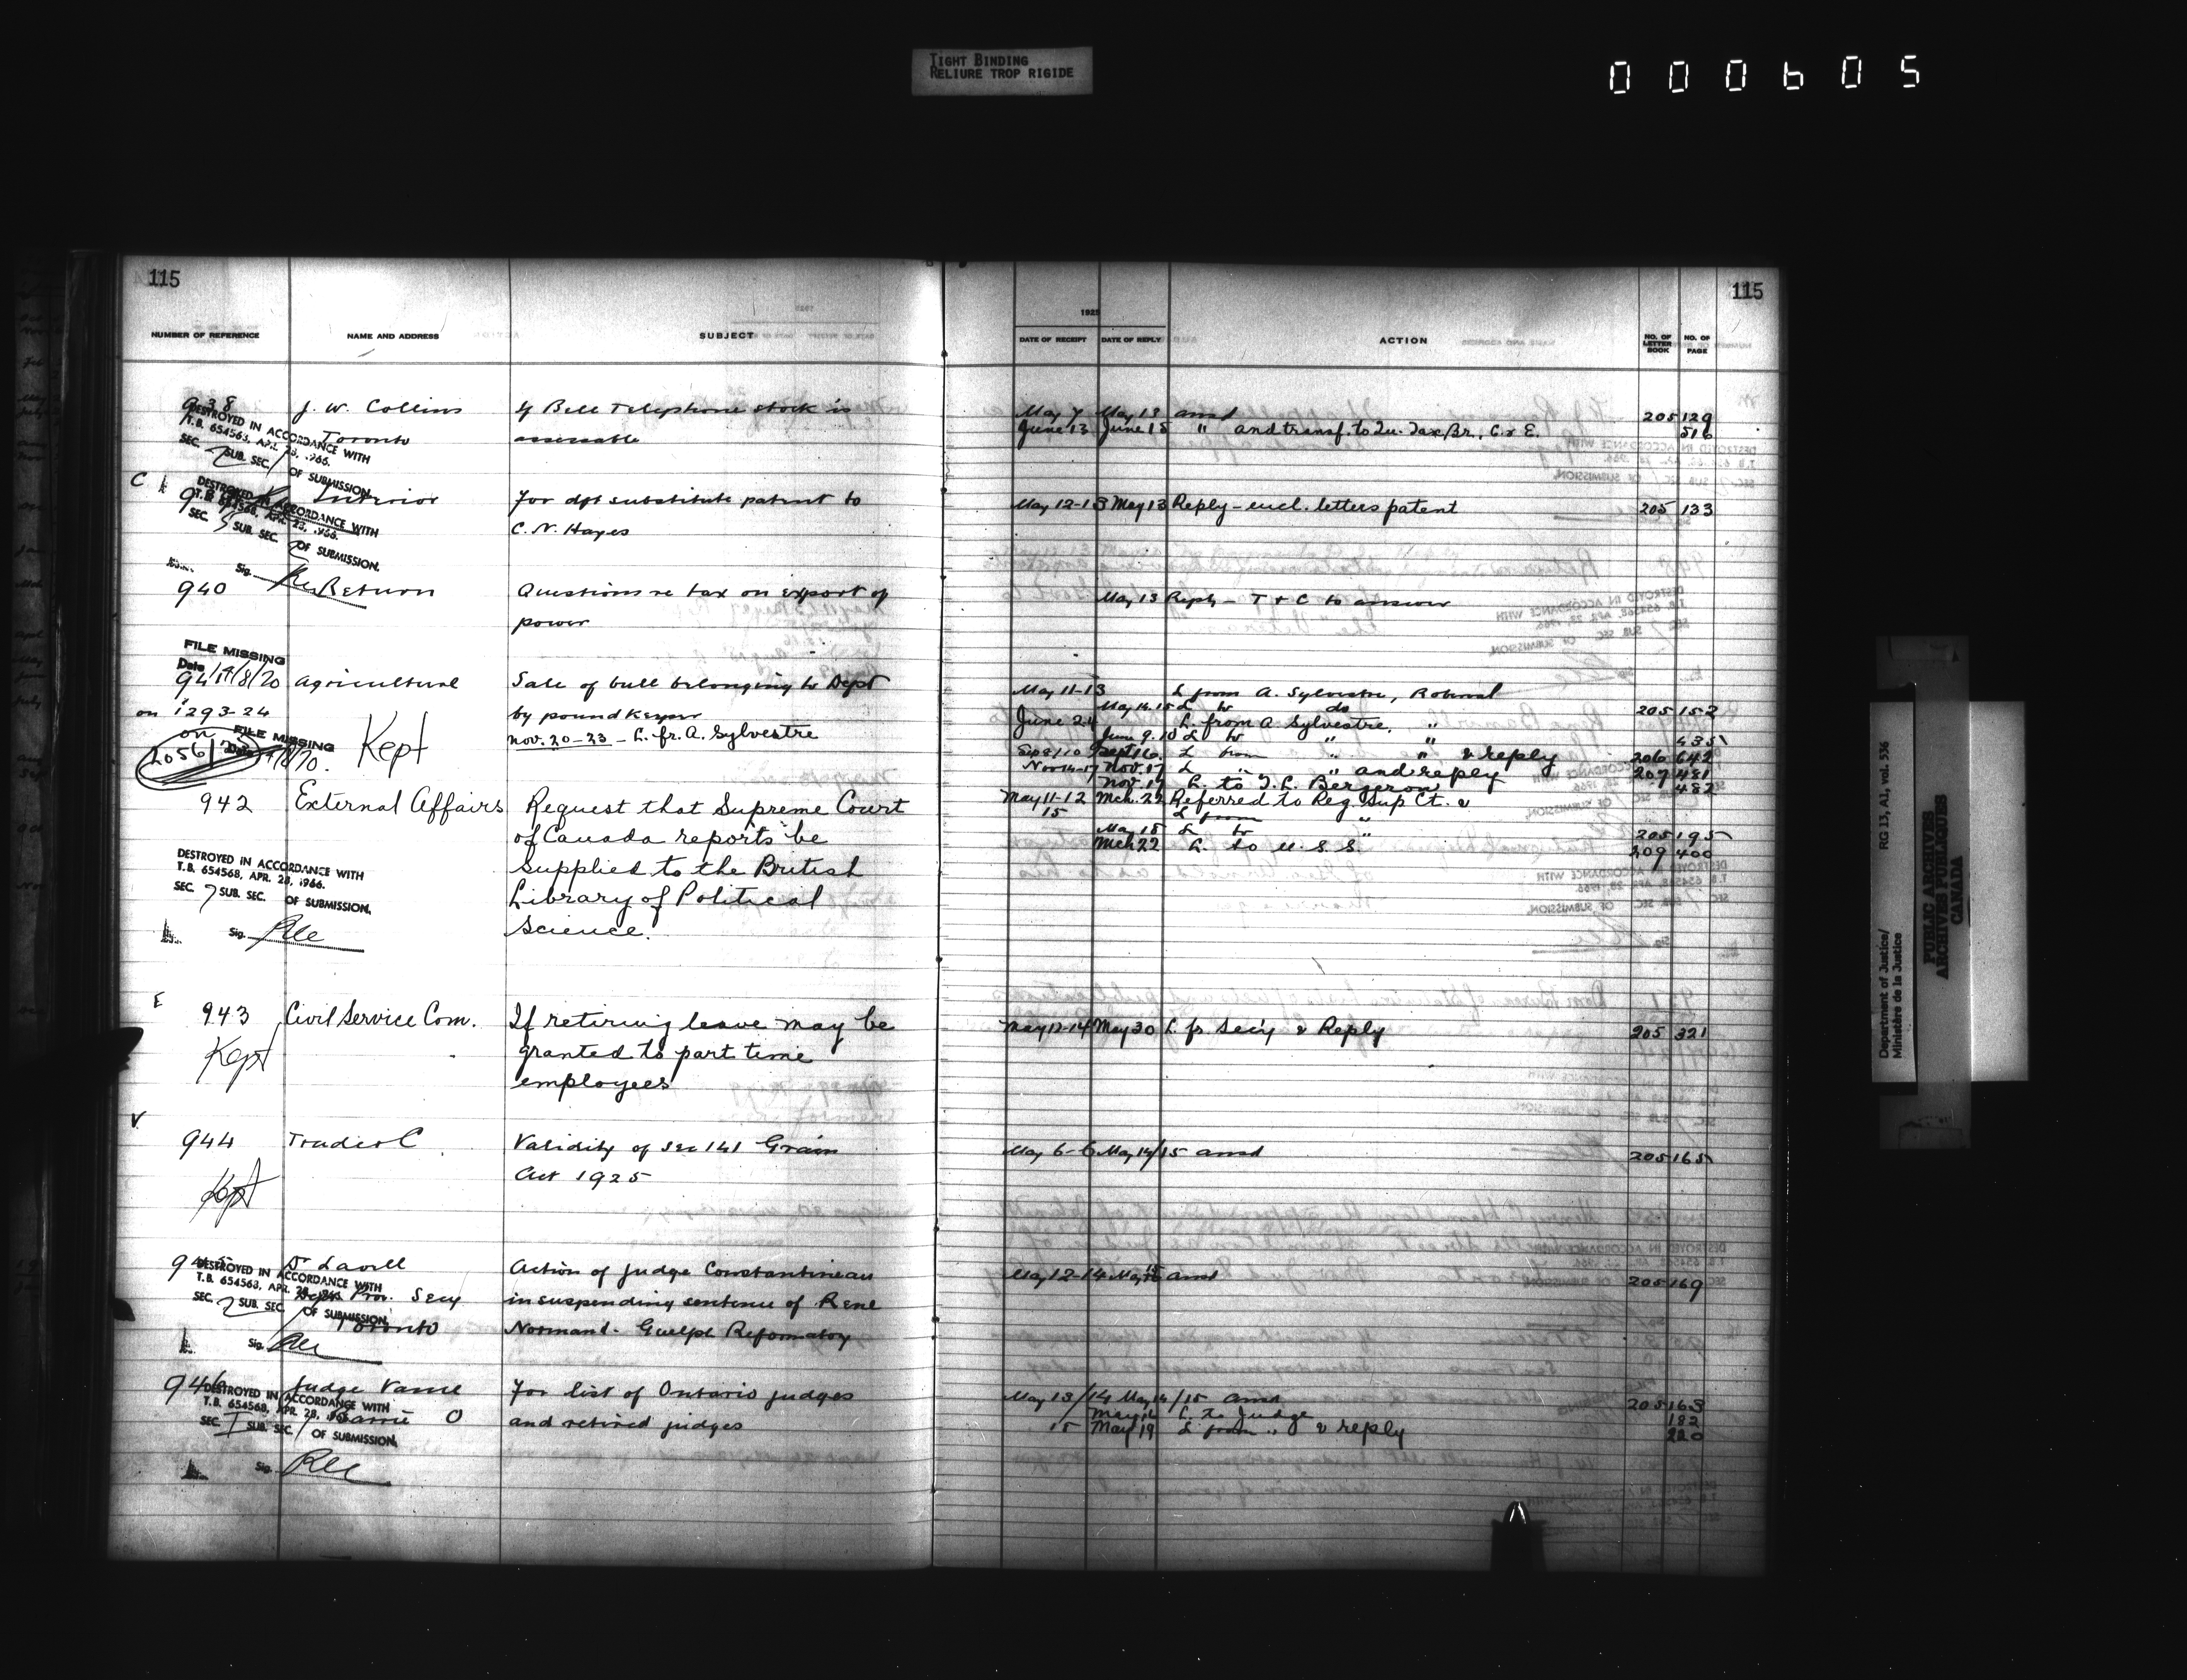 TIGHT BINDING
RELIURE TROP RIGIDE
000605
115
NUMBER OF REFERENCE NAME AND ADDRESS SUBJECT
938 J. W. Collins If Bell Telephone stock is
Toronto assessable
DESTROYED IN ACCORDANCE WITH
T.B. 654568, APR. 28, 1966.
SEC. 2 SUB. SEC. 1 OF SUBMISSION.
C
Interior For dft substitute patent to
C. N. Hayes
DESTROYED IN ACCORDANCE WITH
T.B. 654568, APR. 28, 1966.
SEC. 5 SUB. SEC. 2 OF SUBMISSION.
Sig.
940 Return Questions re tax on export of
power
FILE MISSING
Date 14/8/70
941 Agricultural Sale of bull belonging to Dept
on 1293-24 by pound keeper
on FILE MISSING Kept Nov. 20-23 - L. fr. A. Sylvestre
2056
942 External Affairs Request that Supreme Court
of Canada reports be
supplied to the British
Library of Political
Science.
DESTROYED IN ACCORDANCE WITH
T.B. 654568, APR. 28, 1966.
SEC. 7 SUB. SEC. OF SUBMISSION.
Sig.
E
943 Civil Service Com. If retiring leave may be
Kept granted to part time
employees
V
944 Trade & C Validity of sec 141 Grain
Kept Act 1925
945 Dr Lavell Action of Judge Constantineau
Prov. Secy in suspending sentence of Rene
Toronto Normand - Guelph Reformatory
DESTROYED IN ACCORDANCE WITH
T.B. 654568, APR. 28, 1966.
SEC. 2 SUB. SEC. 1 OF SUBMISSION.
Sig.
946 Judge Vance For list of Ontario judges
Barrie O and retired judges
DESTROYED IN ACCORDANCE WITH
T.B. 654568, APR. 28, 1966.
SEC. 1 SUB. SEC. 1 OF SUBMISSION.
Sig.
115
1925
DATE OF RECEIPT DATE OF REPLY ACTION NO. OF LETTER BOOK NO. OF PAGE
May 7 May 13 ansd 205 129
June 13 June 15 " and transf. to In. Tax Br., C & E. 516
May 12-13 May 13 Reply - encl. letters patent 205 133
May 13 Reply - T & C to answer
May 11-13 L from A. Sylvestre,
May 14.15 L to do 205 152
June 24 L. from A Sylvestre, "
June 9.10 L to " 435
Sep 8/10 Sept 16. L from " " & reply 206 642
Nov 14-17 Nov. 17 L " " and reply 207 481
Nov. 17 L. to J. L. Bergeron 482
May 11-12 Mch. 22 Referred to Reg. Sup Ct. &
15 L from "
May 18 L to " 205 195
Mch 22 L. to U.S.S. 209 400
May 12-14 May 30 L. fr. Sec'y & Reply 205 321
May 6-6 May 14/15 ansd 205 165
May 12-14 May 15 ansd 205 169
May 13/14 May 14/15 ansd 205 163
May 16 L. to Judge 182
15 May 19 L from " & reply 220
Department of Justice/
Ministère de la Justice
RG 13, A1, vol. 536
PUBLIC ARCHIVES
ARCHIVES PUBLIQUES
CANADA